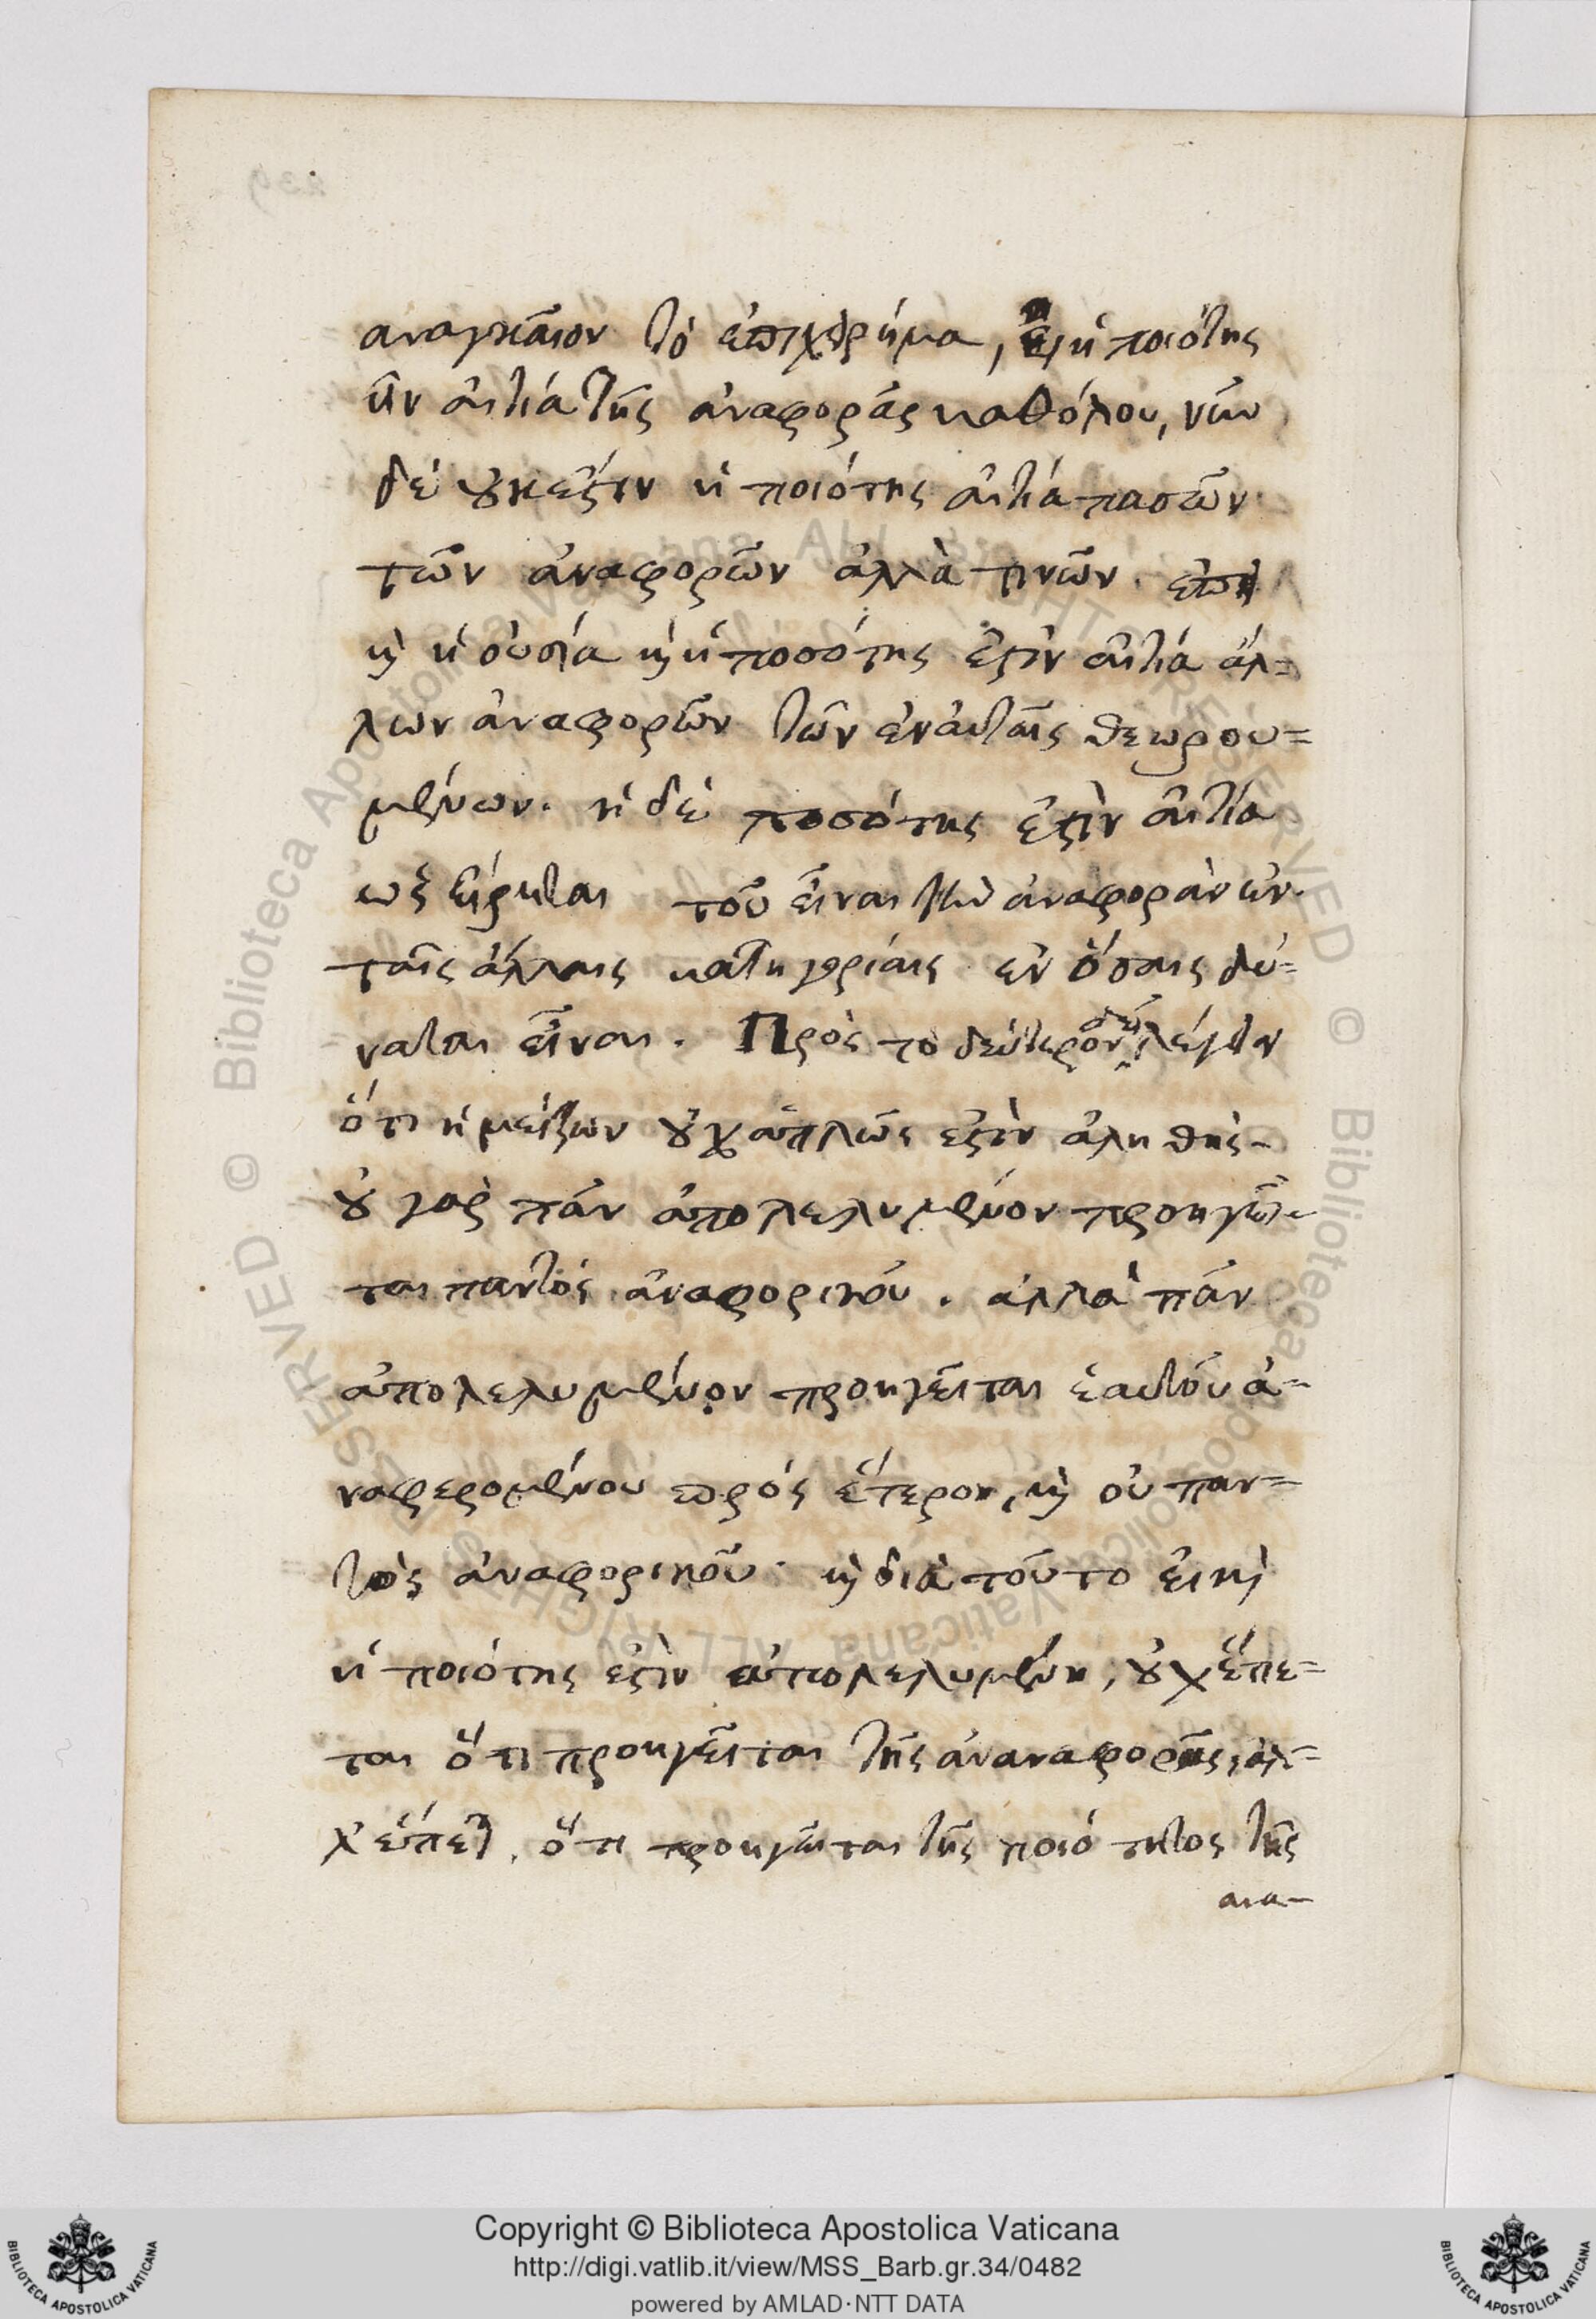 αναγκαῖον τὸ ἐπιχείρημα, εἰ ἡ ποιότης
ἦν αἰτία τῆς ἀναφορᾶς καθόλου, νῦν
δὲ οὐκ ἔστιν ἡ ποιότης αἰτία πασῶν
τῶν ἀναφορῶν ἀλλὰ τινῶν.
καὶ ἡ οὐσία καὶ ἡ ποσότης ἐστὶν αἰτία ἄλ=
λων ἀναφορῶν τῶν ἐν αὐταῖς θεωρου=
μένων. ἡ δὲ ποσότης ἐστὶν αἰτία
ὡς εἴρηται τοῦ εἶναι τὴν ἀναφορὰν ἐν
ταῖς ἄλλαις κατηγορίαις ἐν ὅσαις δύ=
ναται εἶναι. Πρὸς τὸ δεύτερον δεῖ λέγειν
ὅτι ἡ μείζων οὐχ ἁπλῶς ἐστὶν ἀληθής-
οὐ γὰρ πᾶν ἀπολελυμένον προηγεῖ-
ται παντὸς ἀναφορικοῦ. ἀλλὰ πᾶν
ἀπολελυμένον προηγεῖται ἑαυτοῦ ἀ-
ναφερομένου πρὸς ἕτερον, καὶ οὐ παν=
τὸς ἀναφορικοῦ. καὶ διὰ τοῦτο εἰ καὶ
ἡ ποιότης ἐστὶν ἀπολελυμένη, οὐχ ἕπε=
ται ὅτι προηγεῖται τῆς ἀναναφορᾶς, ἀλ=
λ' ἕπεται. ὅτι προηγεῖται τῆς ποιότητος τῆς
ανα-
239
Copyright © Biblioteca Apostolica Vaticana
http://digi.vatlib.it/view/MSS_Barb.gr.34/0482
powered by AMLAD·NTT DATA
BIBLIOTECA APOSTOLICA VATICANA
BIBLIOTECA APOSTOLICA VATICANA
© Biblioteca Apostolica Vaticana ALL RIGHTS RESERVED
© Biblioteca Apostolica Vaticana ALL RIGHTS RESERVED